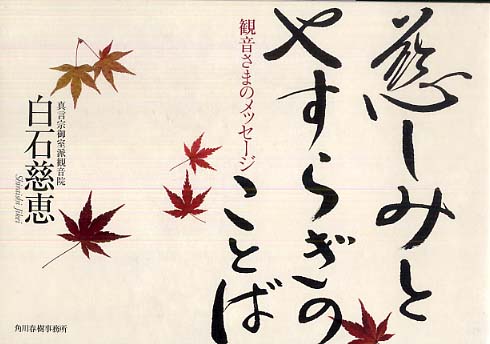 慈しみと
やすらぎの
ことば
観音さまのメッセージ
真言宗御室派観音院
白石慈恵
Shiraishi Jikei
角川春樹事務所